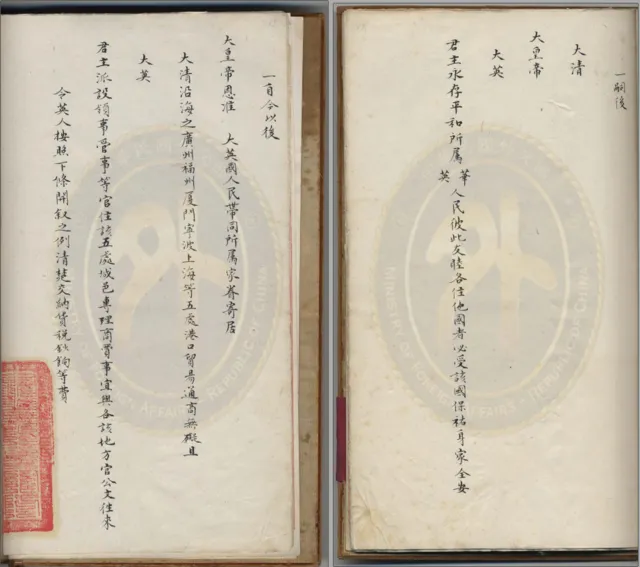 一嗣後
大清
大皇帝
大英
君主永存平和所屬華英人民彼此友睦各住他國者必受該國保祐身家全安
一自今以後
大皇帝恩准 大英國人民帶同所屬家眷寄居
大清沿海之廣州福州廈門寧波上海等五處港口貿易通商無礙且
大英
君主派設領事管事等官住該五處城邑專理商賈事宜與各該地方官公文往來
令英人按照下條開敘之例清楚交納貨稅鈔餉等費
MINISTRY OF FOREIGN AFFAIRS REPUBLIC OF CHINA
MINISTRY OF FOREIGN AFFAIRS REPUBLIC OF CHINA